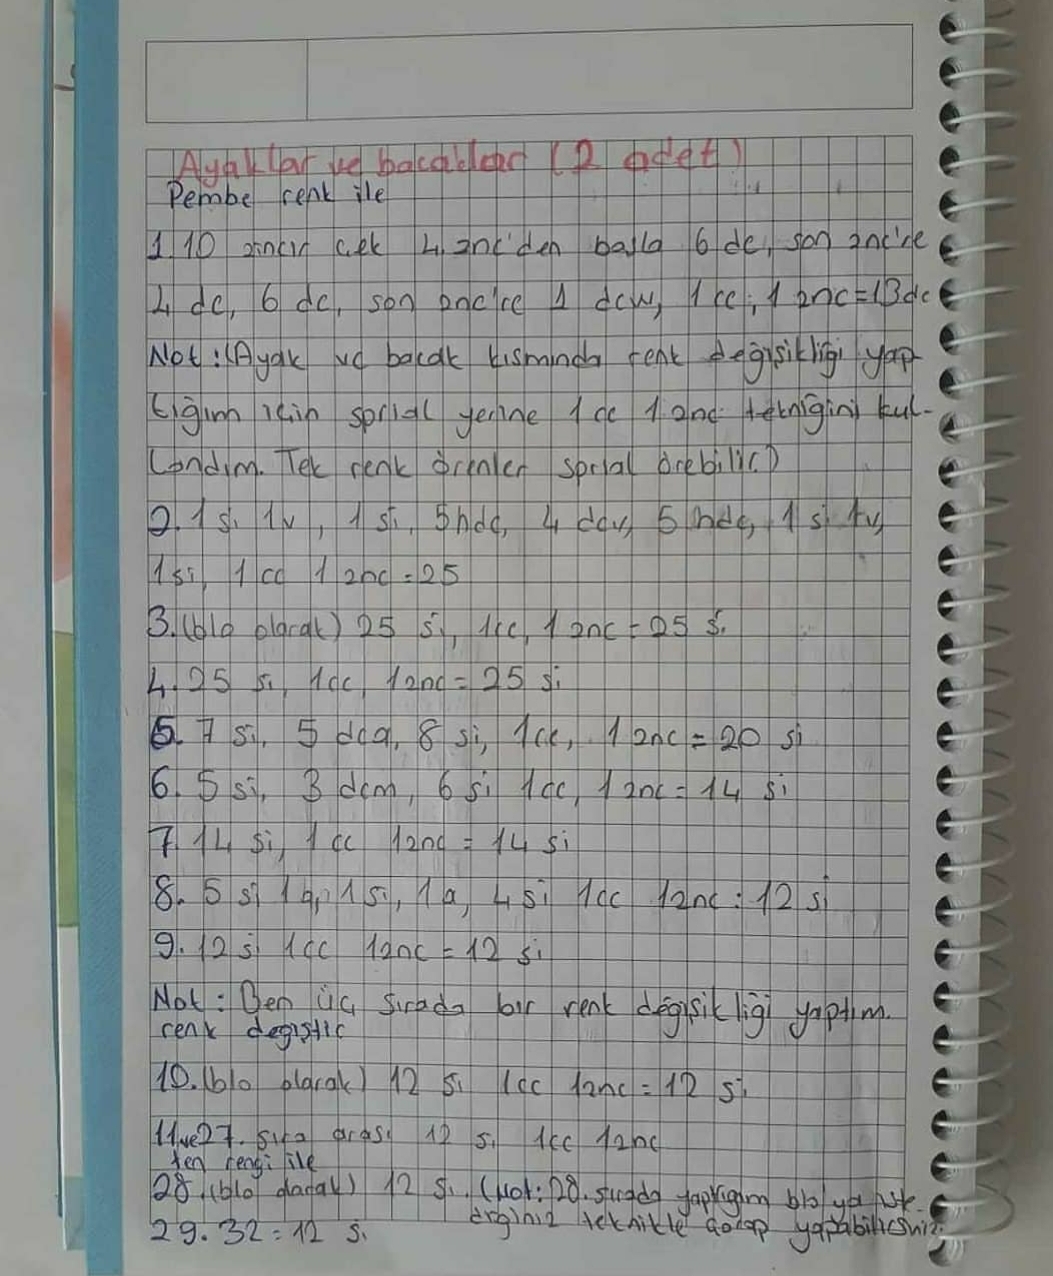 Ayaklar ve bacaklar (2 adet)
Pembe renk ile
1. 10 zincir çek 4. znc'den başla 6 dc, son znc'ce
4 dc, 6 dc, son znc'ce 1 dcw, 1 cc, 1 znc=(3dc
Not: (Ayak ve bacak kısmında renk değişikliği yap
tığım için sprial yerine 1 cc 1 znc tekniğini kul-
landım. Tek renk örenler sprial örebilir.)
2. 1 si 1v, 1 si, 5hdc, 4 dcv, 5 hdc, 1 si 1v,
1si, 1 cc 1 znc = 25
3. (blo olarak) 25 si, 1cc, 1 znc = 25 si
4. 25 si, 1cc, 1znc = 25 si
5. 7 si, 5 dca, 8 si, 1cc, 1 znc = 20 si
6. 5 si, 3 dcm, 6 si 1cc, 1 znc = 14 si
7. 14 si, 1 cc 1znc = 14 si
8. 5 si 1a, 1si, 1a, 4si 1cc 1znc = 12 si
9. 12 si 1cc 1znc = 12 si
Not: Ben üç sırada bir renk değişikliği yaptım.
renk degıştir
10. (blo olarak) 12 si 1cc 1znc = 12 si
11ve27. sıra arası 12 si 1cc 1znc
ten rengi ile
28. (blo olarak) 12 si. (Not: 28. sırada yaptıgım blo ya iste
diginiz teknikle çorap yapabilirsiniz.
29. 32 = 12 si